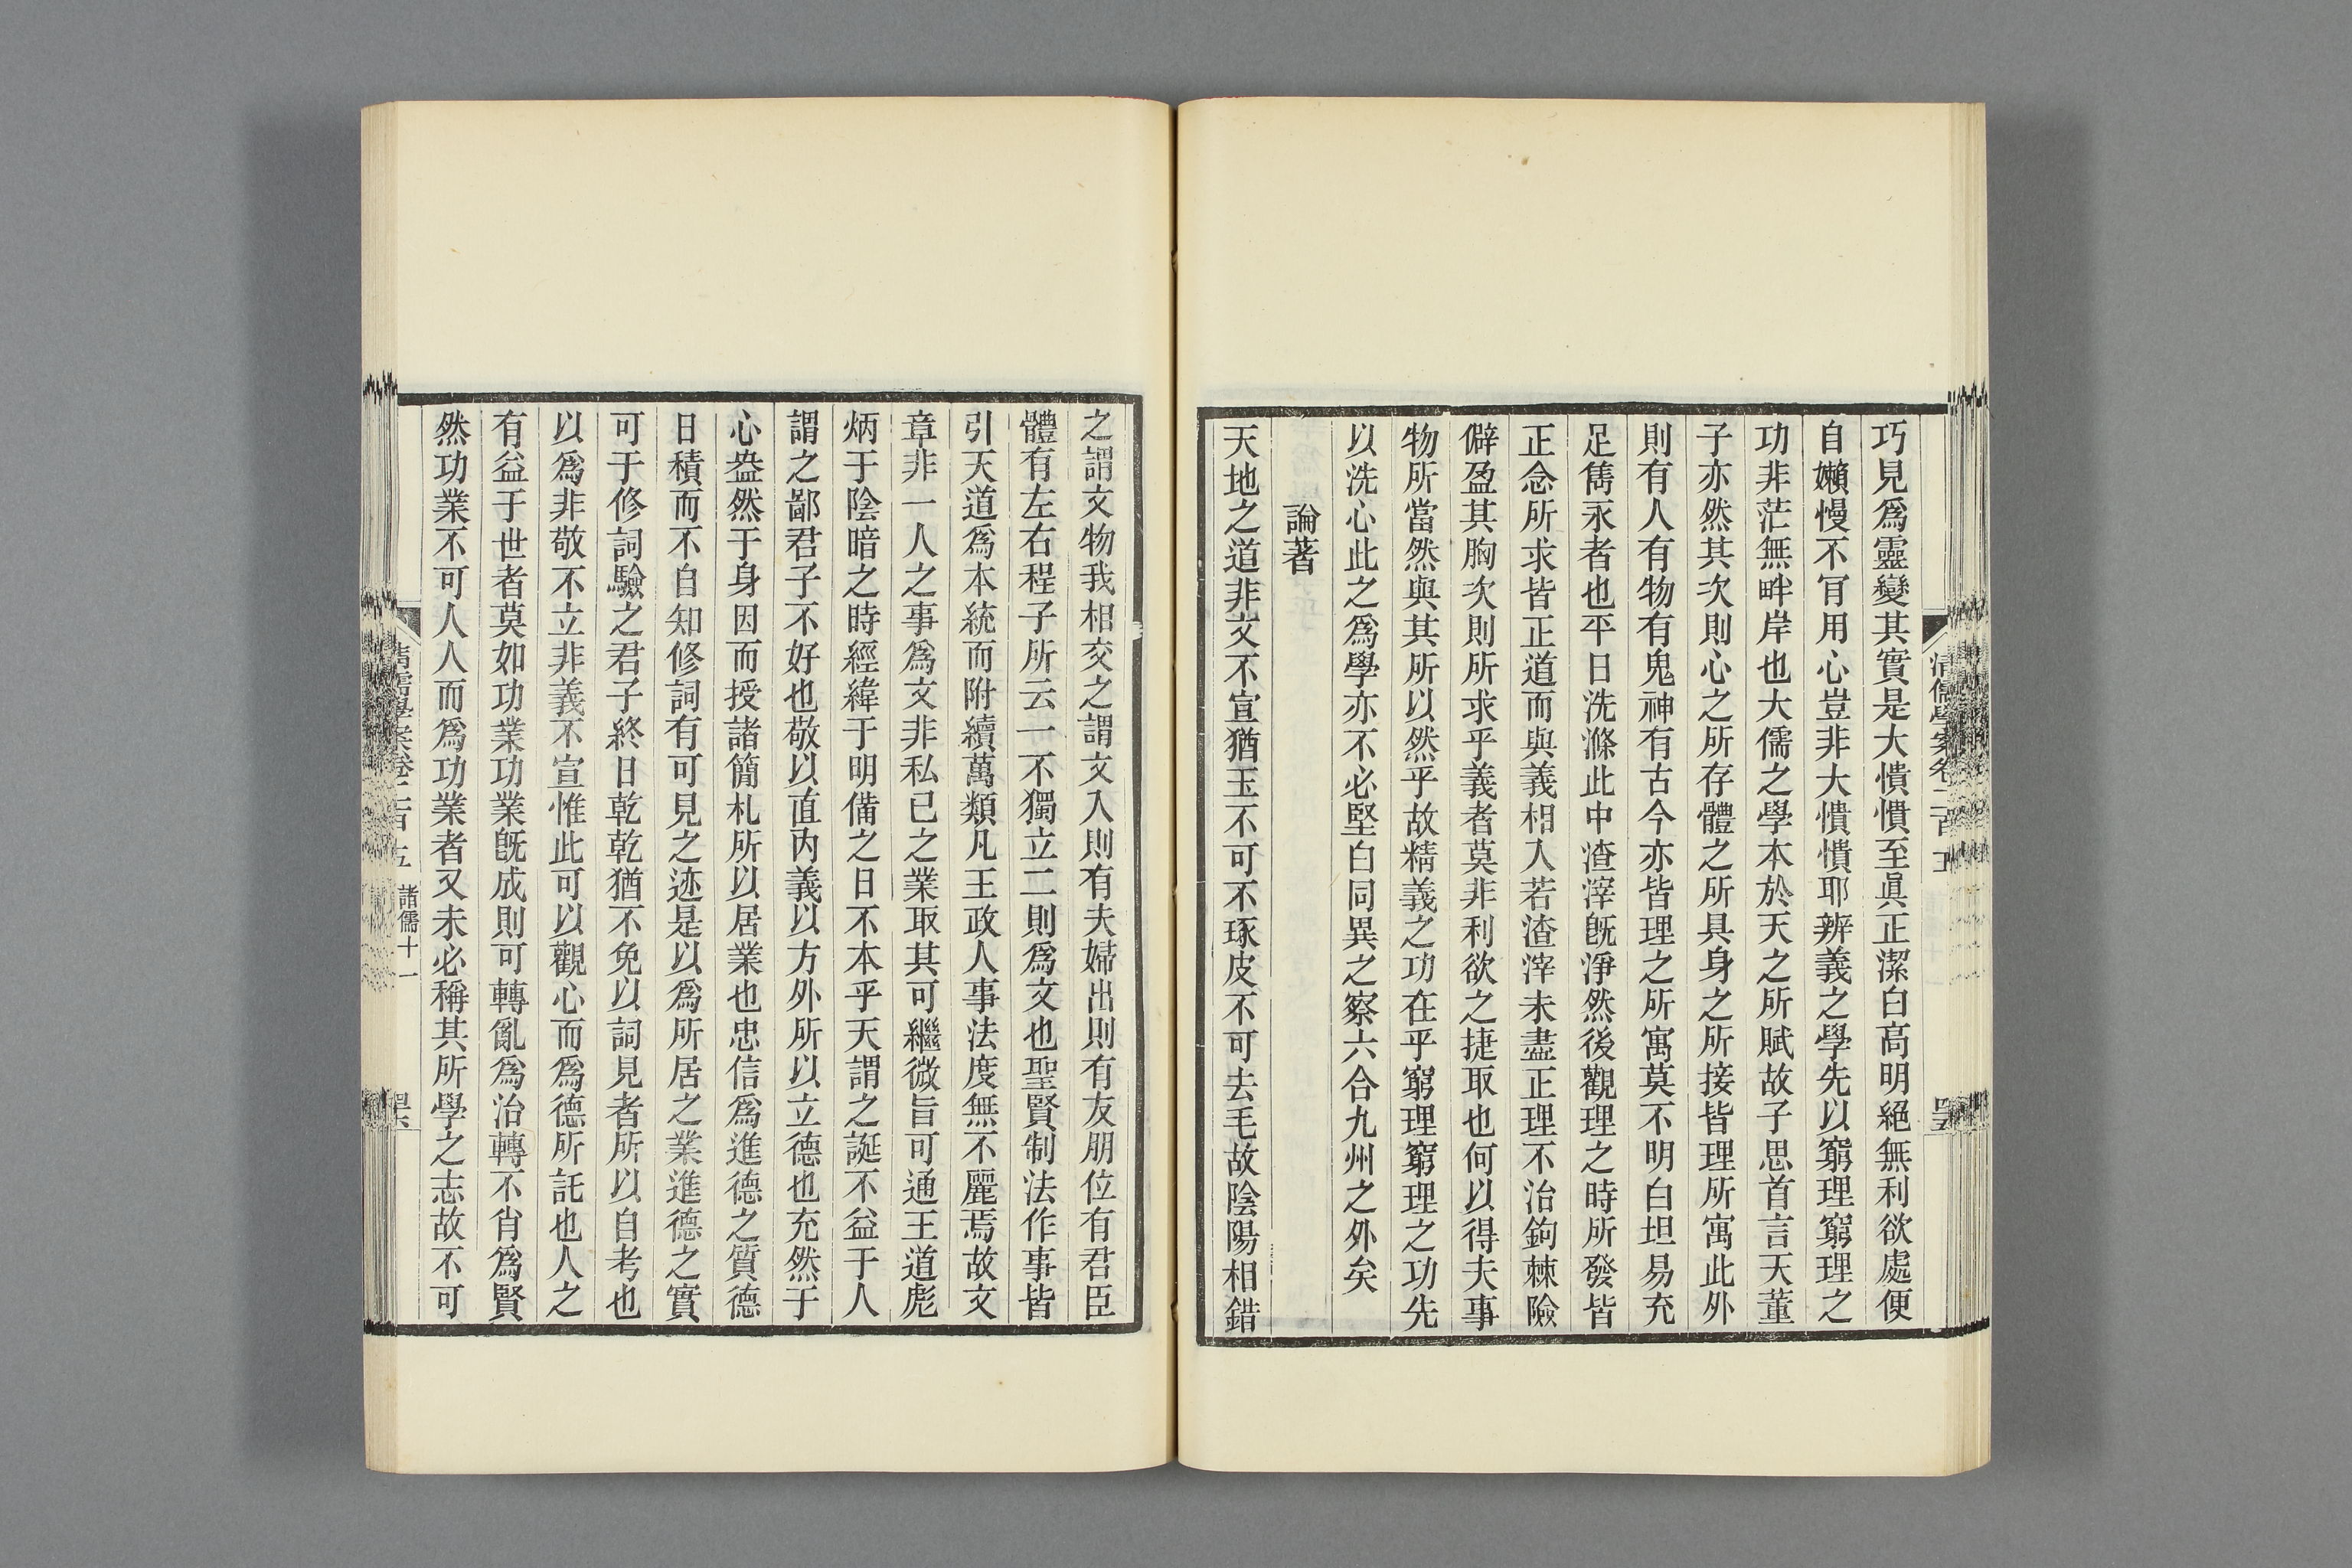 巧見爲靈變其實是大憒憒至眞正潔白高明絕無利欲處便
自嬾慢不肎用心豈非大憒憒耶辨義之學先以窮理窮理之
功非茫無畔岸也大儒之學本於天之所賦故子思首言天董
子亦然其次則心之所存體之所具身之所接皆理所寓此外
則有人有物有鬼神有古今亦皆理之所寓莫不明白坦易充
足雋永者也平日洗滌此中渣滓旣淨然後觀理之時所發皆
正念所求皆正道而與義相入若渣滓未盡正理不治鉤棘險
僻盈其胸次則所求乎義者莫非利欲之捷取也何以得夫事
物所當然與其所以然乎故精義之功在乎窮理窮理之功先
以洗心此之爲學亦不必堅白同異之察六合九州之外矣
論著
天地之道非文不宣猶玉不可不琢皮不可去毛故陰陽相錯
清儒學案卷二百五
之謂文物我相交之謂文入則有夫婦出則有友朋位有君臣
體有左右程子所云一不獨立二則爲文也聖賢制法作事皆
引天道爲本統而附續萬類凡王政人事法度無不麗焉故文
章非一人之事爲文非私已之業取其可繼微旨可通王道彪
炳于陰暗之時經緯于明備之日不本乎天謂之誕不益于人
謂之鄙君子不好也敬以直內義以方外所以立德也充然于
心盎然于身因而授諸簡札所以居業也忠信爲進德之質德
日積而不自知修詞有可見之迹是以爲所居之業進德之實
可于修詞驗之君子終日乾乾猶不免以詞見者所以自考也
以爲非敬不立非義不宣惟此可以觀心而爲德所託也人之
有益于世者莫如功業功業旣成則可轉亂爲治轉不肖爲賢
然功業不可人人而爲功業者又未必稱其所學之志故不可
清儒學案卷二百五 諸儒十一